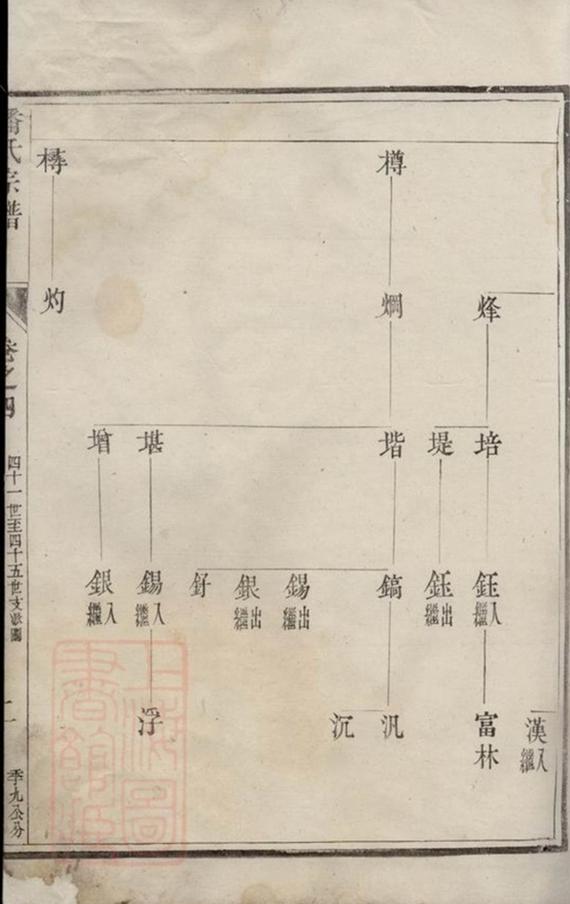 漢
入繼
烽
培
鈺
入繼
富林
堤
鈺
出繼
樽
烱
堦
鎬
汎
沉
錫
出繼
銀
出繼
釪
堪
錫
入繼
浮
增
銀
入繼
樳
灼
潘氏宗譜
卷之四
四十一世至四十五世支派圖
季九公分